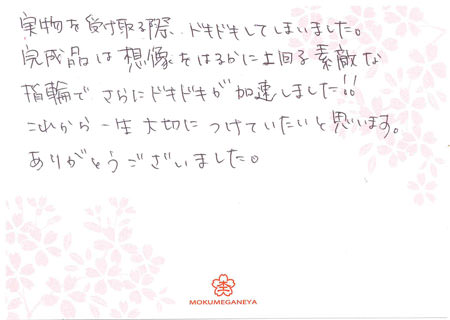 実物を受け取る際、ドキドキしてしまいました。
完成品は想像をはるかに上回る素敵な
指輪でさらにドキドキが加速しました!!
これから一生大切につけていたいと思います。
ありがとうございました。
MOKUMEGANEYA